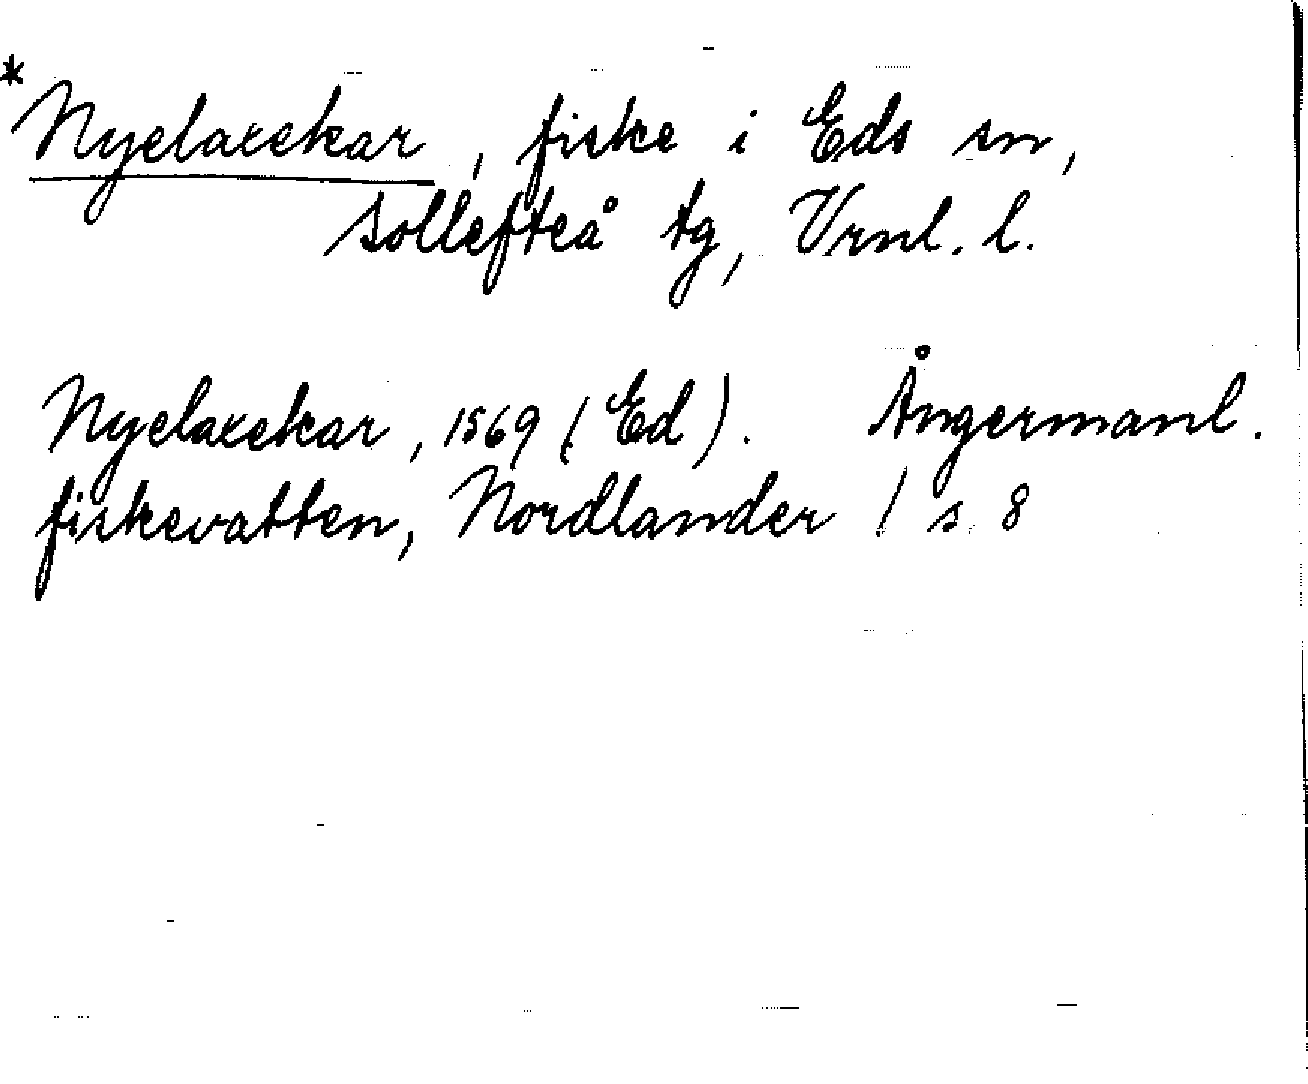 * Nyelaxekar, fiske i Eds sn,
Sollefteå tg, Vrnl. l.
Nyelaxekar, 1569 (Ed). Ångermanl.
fiskevatten, Nordlander / s. 8